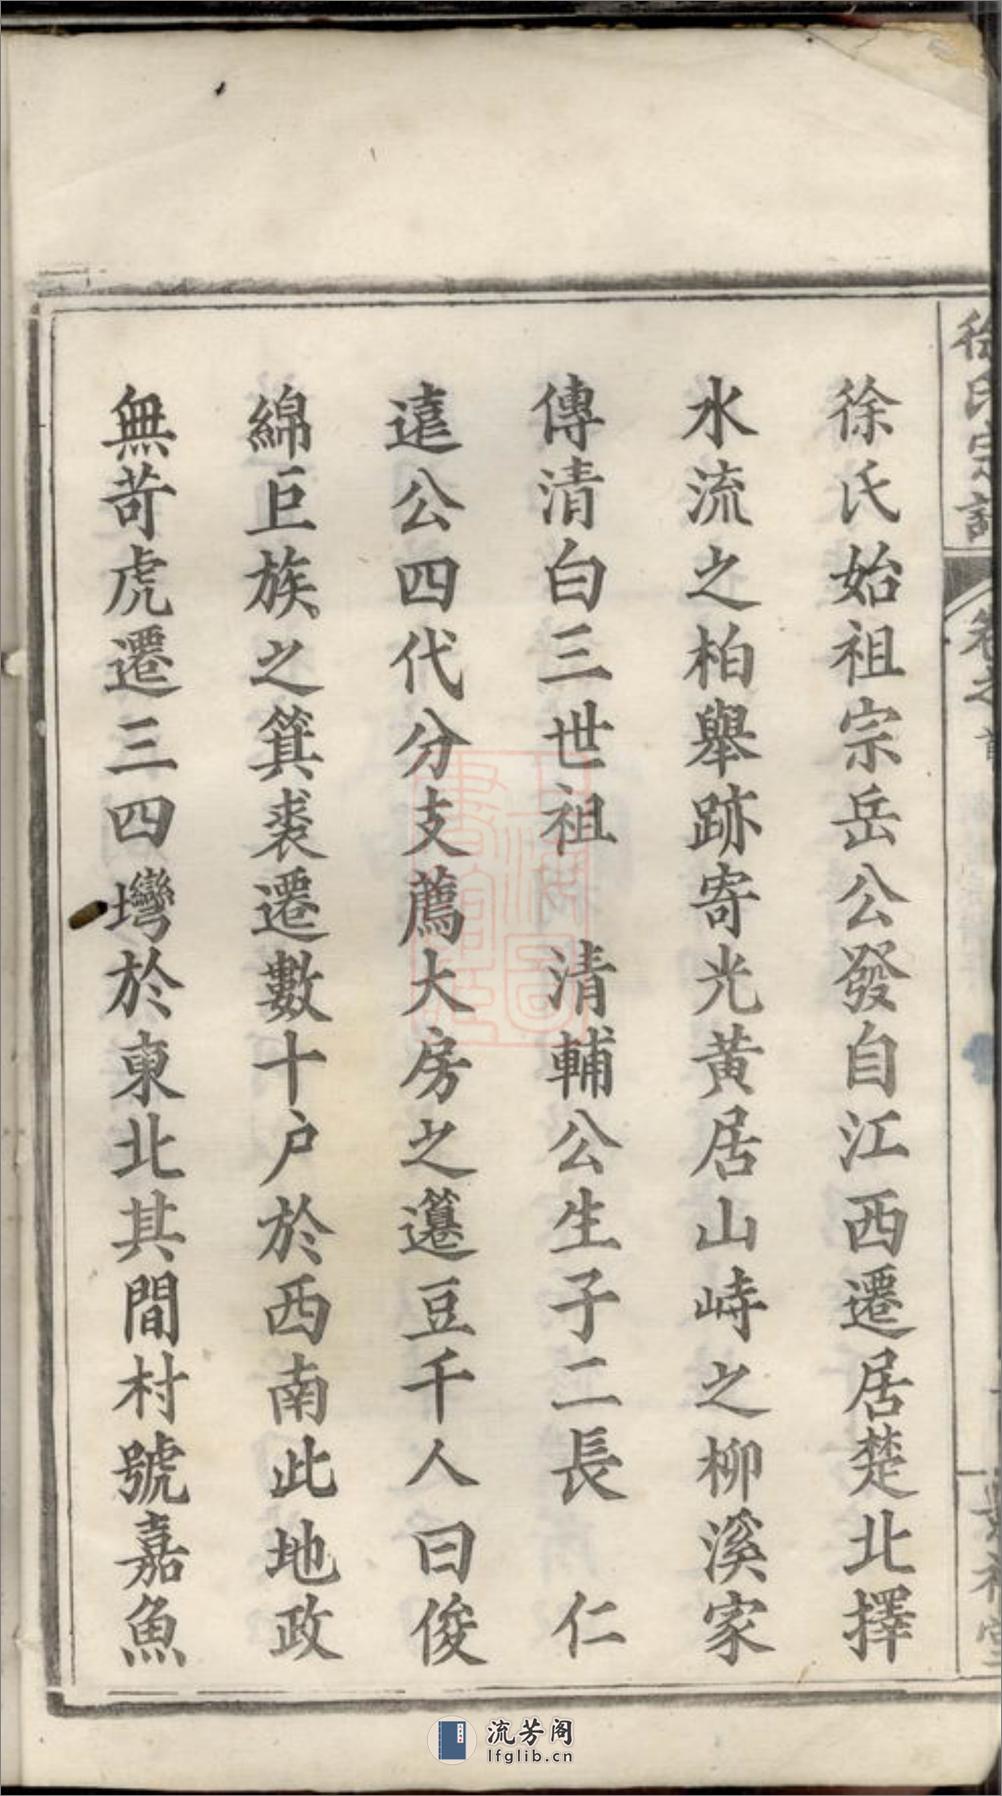 徐氏始祖宗岳公發自江西遷居楚北擇
水流之柏舉跡寄光黃居山峙之柳溪家
傳清白三世祖 清輔公生子二長 仁
遠公四代分支薦大房之籩豆千人曰俊
綿巨族之箕裘遷數十户於西南此地政
無苛虎遷三四灣於東北其間村號嘉魚
徐氏宗譜
卷之首
流芳阁
lfglib.cn